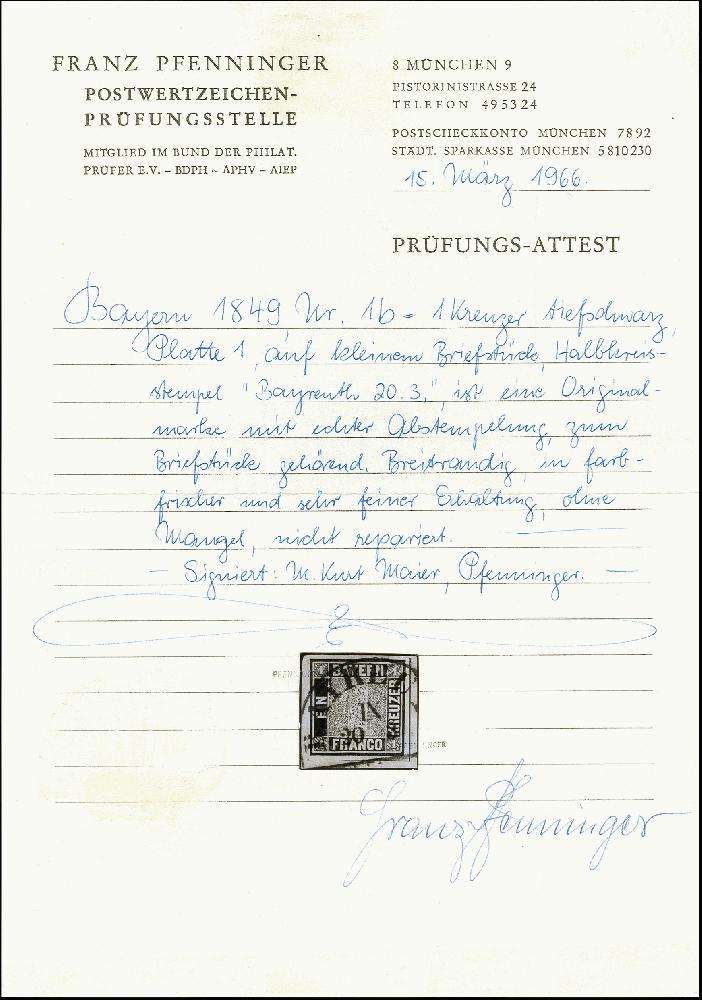 FRANZ PFENNINGER
POSTWERTZEICHEN-
PRÜFUNGSSTELLE
MITGLIED IM BUND DER PHILAT.
PRÜFER E.V. – BDPH – APHV – AIEP
8 MÜNCHEN 9
PISTORINISTRASSE 24
TELEFON 495324
POSTSCHECKKONTO MÜNCHEN 7892
STÄDT. SPARKASSE MÜNCHEN 5810230
15. März 1966.
PRÜFUNGS-ATTEST
Bayern 1849, Nr. 1b - 1 Kreuzer tiefschwarz,
Platte 1, auf kleinem Briefstück, Halbkreis-
stempel "Bayreuth 20.3.", ist eine Original-
marke mit echter Abstempelung, zum
Briefstück gehörend. Breitrandig, in farb-
frischer und sehr feiner Erhaltung, ohne
Mangel, nicht repariert.
— Signiert: M. Kurt Maier, Pfenninger. —
BAYERN
EIN
KREUZER
FRANCO
IX
20
Franz Pfenninger